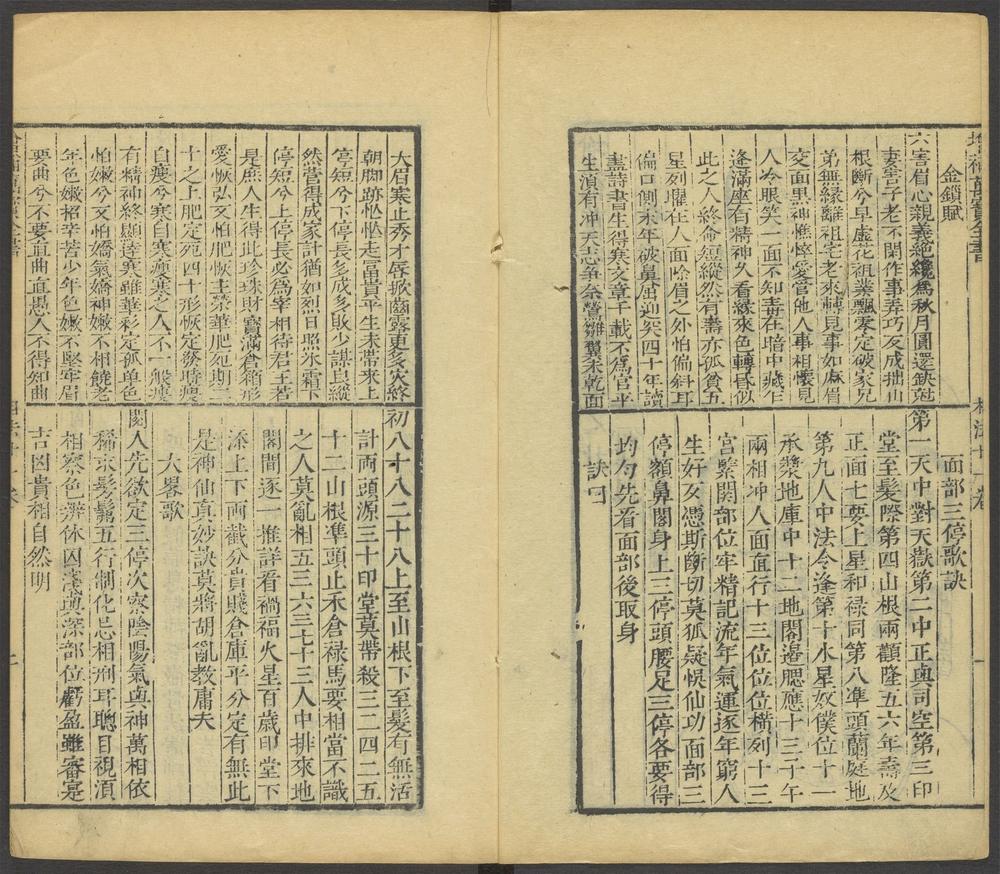 增補萬寶全書
相法十一卷
金鎖賦
六害眉心親義絶纔爲秋月圓還缺尅
妻害子老不閑作事弄巧反成拙山
根斷兮早虛花祖業飄零定破家兄
弟無緣離祖宅老來轉見事如麻眉
交面黑神憔悴愛管他人事相懷見
人冷眼笑一面不知毒在暗中藏乍
逢滿座有精神久看緣來色轉昏似
此之人終命短縱然有壽亦孤貧五
星列曜在人面除眉之外怕偏斜耳
偏口側末年破鼻屈迎突四十年讀
盡詩書生得寒文章千載不爲官平
生湏有冲天志争奈鶯雛翼未乾面
面部三停歌訣
第一天中對天獄第二中正與司空第三印
堂至髮際第四山根兩顴隆五六年壽及
正面七要上星和禄同第八凖頭蘭庭地
第九人中法令逢第十水星奴僕位十一
承漿地庫中十二地閣邊腮應十三子午
兩相冲人面直行十三位位位橫列十三
宮緊関部位牢精記流年氣運逐年窮人
生好歹憑斯断切莫狐疑悮仙功面部三
停額鼻閣身上三停頭腰足三停各要得
均勻先看面部後取身
訣曰
大眉寒止秀才辱掀齒露更多灾終
朝脚跡忪忪走冨貴平生未帶來上
停短兮下停長多成多敗少謀良縱
然營得成家計猶如烈日照氷霜下
停短兮上停長必爲宰相待君王若
是庶人生得此珍珠財寳滿倉箱形
愛恢弘又怕肥恢主榮華肥死期二
十之上肥定死四十形恢定發時瘦
自瘦兮寒自寒瘦寒之人不一般瘦
有精神終顯達寒雖華彩定孤单色
怕嫩兮又怕嬌氣嬌神嫩不相饒老
年色嫩招辛苦少年色嫩不堅牢眉
要曲兮不要直曲直愚人不得知曲
初八十八二十八上至山根下至髮有無活
計両頭源三十印堂莫帶殺三二四二五
十二山根凖頭止禾倉禄馬要相當不識
之人莫亂相五三六三七十三人中排來地
閣間逐一推詳看禍福火星百歲印堂下
添上下両截分貴賤倉庫平分定有無此
是神仙真妙訣莫將胡亂教庸夫
大畧歌
閱人先欲定三停次察陰陽氣與神萬相依
稀求髮鬚五行制化忌相刑耳聰目視湏
相察色辨休囚淺與深部位虧盈雖審寔
吉凶貴相自然明